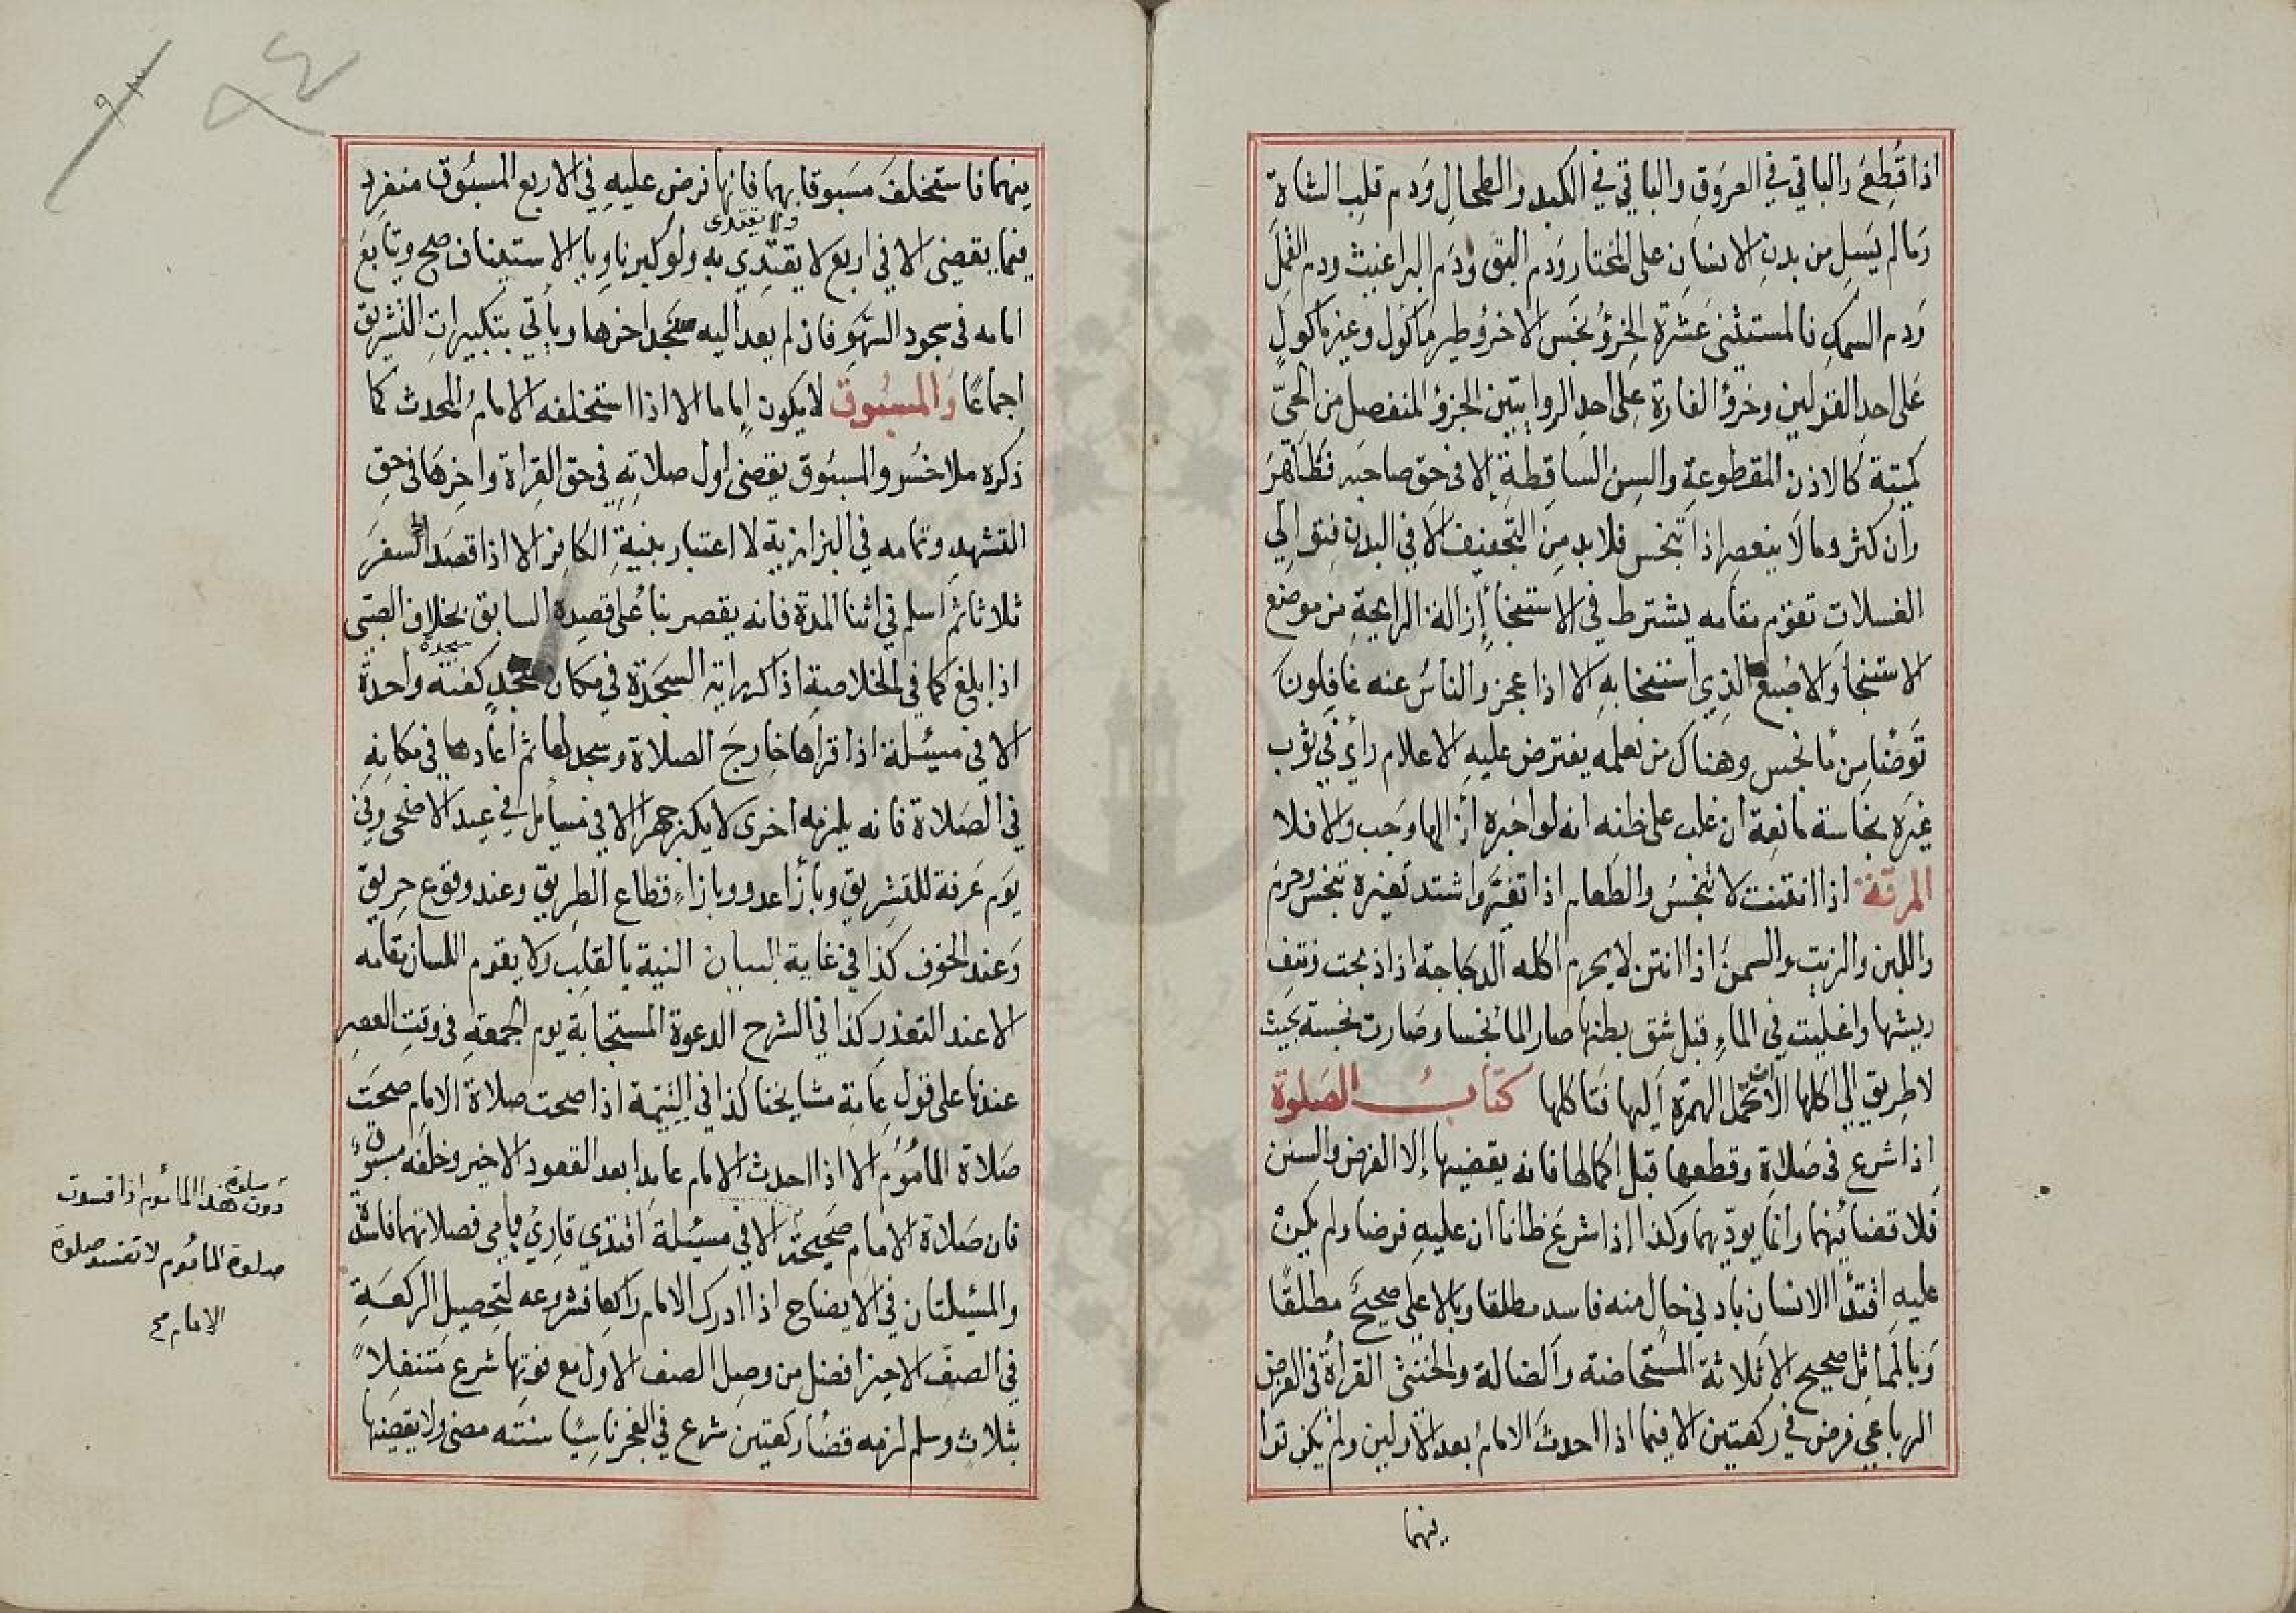 اذا قُطِعَ والباقي في العروق والباقي في الكبد والطحال ودم قلب الشاة
وما لم يسل من بدن الانسان على المختار ودم البق ودم البراغيث ودم القمل
ودم السمك فالمستثنى عشرة الخرؤ نجس الا خرؤ طير ماكول وغير ماكول
على احد القولين وخرؤ الفارة على احد الروايتين الجزؤ المنفصل من الحي
كميتة كالاذن المقطوعة والسن الساقطة الا في حق صاحبه فطاهر
وان كثر وما لا ينعصر اذا تنجس فلا بد من التجفيف الا في البدن فتوالي
الغسلات تقوم مقامه يشترط في الاستنجا إزالة الرايحة من موضع
الاستنجا والاصبع الذي استنجا به الا اذا عجز والناس عنه غافلون
توضا من ما نجس وهناك من يعلمه يفترض عليه الاعلام رأي في ثوب
غيره نجاسة مانعة ان غلب على ظنه انه لو اخبره ازالها وجب والا فلا
المرقة اذا انتنت لا تنجس والطعام اذا تغير واشتد تغيره تنجس وحرم
واللبن والزيت والسمن اذا انتن لا يحرم اكله الدجاجة اذا ذبحت ونتف
ريشها واغليت في الماء قبل شق بطنها صار الما نجسا وصارت نجسة بحيث
لا طريق الي اكلها الا ان تحمل الهرة اليها فتاكلها كتاب الصلوة
اذا شرع في صلاة وقطعها قبل اكمالها فانه يقضيها إلا الفرض والسنن
فلا قضا فيهما وانما يوديهما وكذا اذا شرع ظانا ان عليه فرضا ولم يكن
عليه اقتدأ الانسان بادني حال منه فاسد مطلقا وبالاعلى صحيح مطلقا
وبالمماثل صحيح الا ثلاثة المستحاضة والضالة والخنثى القراة في الفرض
الرباعي فرض في ركعتين الا فيما اذا احدث الامام بعد الاولين ولم يكن قرا
فيهما
فيهما فاستخلف مسبوقا بهما فانها فرض عليه في الاربع المسبوق منفرد
فيما يقضي الا في اربع لا يقتدي به ولو كبر ناويا الاستيناف صح وتابع
ولا يقتدى
امامه في سجود السهو فان لم يعد اليه سجد اخرها وياتي بتكبيرات التشريق
اجماعا والمسبوق لا يكون إماما الا اذا استخلفه الامام المحدث كما
ذكره ملا خسرو والمسبوق يقضي اول صلاته في حق القراة واخرها في حق
التشهد وتمامه في البزازية لا اعتبار بنية الكافر الا اذا قصد السفر
ثلاثا ثم اسلم في اثنا المدة فانه يقصر بنا على قصده السابق بخلاف الصبي
اذا بلغ كما في الخلاصة اذا كرر اية السجدة في مكان متحد كفته واحدة
سجدة
الا في مسيلة اذا قراها خارج الصلاة وسجد لها ثم اعادها في مكانه
في الصلاة فانه يلزمه اخرى لا يكبر جهرا الا في مسايل في عيد الاضحى وفي
يوم عرفة للتشريق وبازا عدو وبازاء قطاع الطريق وعند وقوع حريق
وعند الخوف كذا في غاية البيان النية بالقلب ولا يقوم اللسان مقامه
الا عند التعذر كذا في الشرح الدعوة المستجابة يوم الجمعة في وقت العصر
عندنا على قول عامة مشايخنا كذا في اليتيمة اذا صحت صلاة الامام صحت
صلاة الماموم الا اذا احدث الامام عامدا بعد القعود الاخير وخلفه مسبوق
فان صلاة الامام صحيحة الا في مسيلة اقتدي قارئ بامي فصلاتهما فاسدة
والمسيلتان في الايضاح اذا ادرك الامام راكعا فشروعه لتحصيل الركعة
في الصف الاخير افضل من وصل الصف الاول مع فوتها شرع متنفلا
بثلاث وسلم لزمه قضا ركعتين شرع في الفجر ناسيا سنته مضى ولا يقضيها
دون صلوة هذا المأموم اذا فسدت
صلوة المأموم لا تفسد صلوة
الامام صح